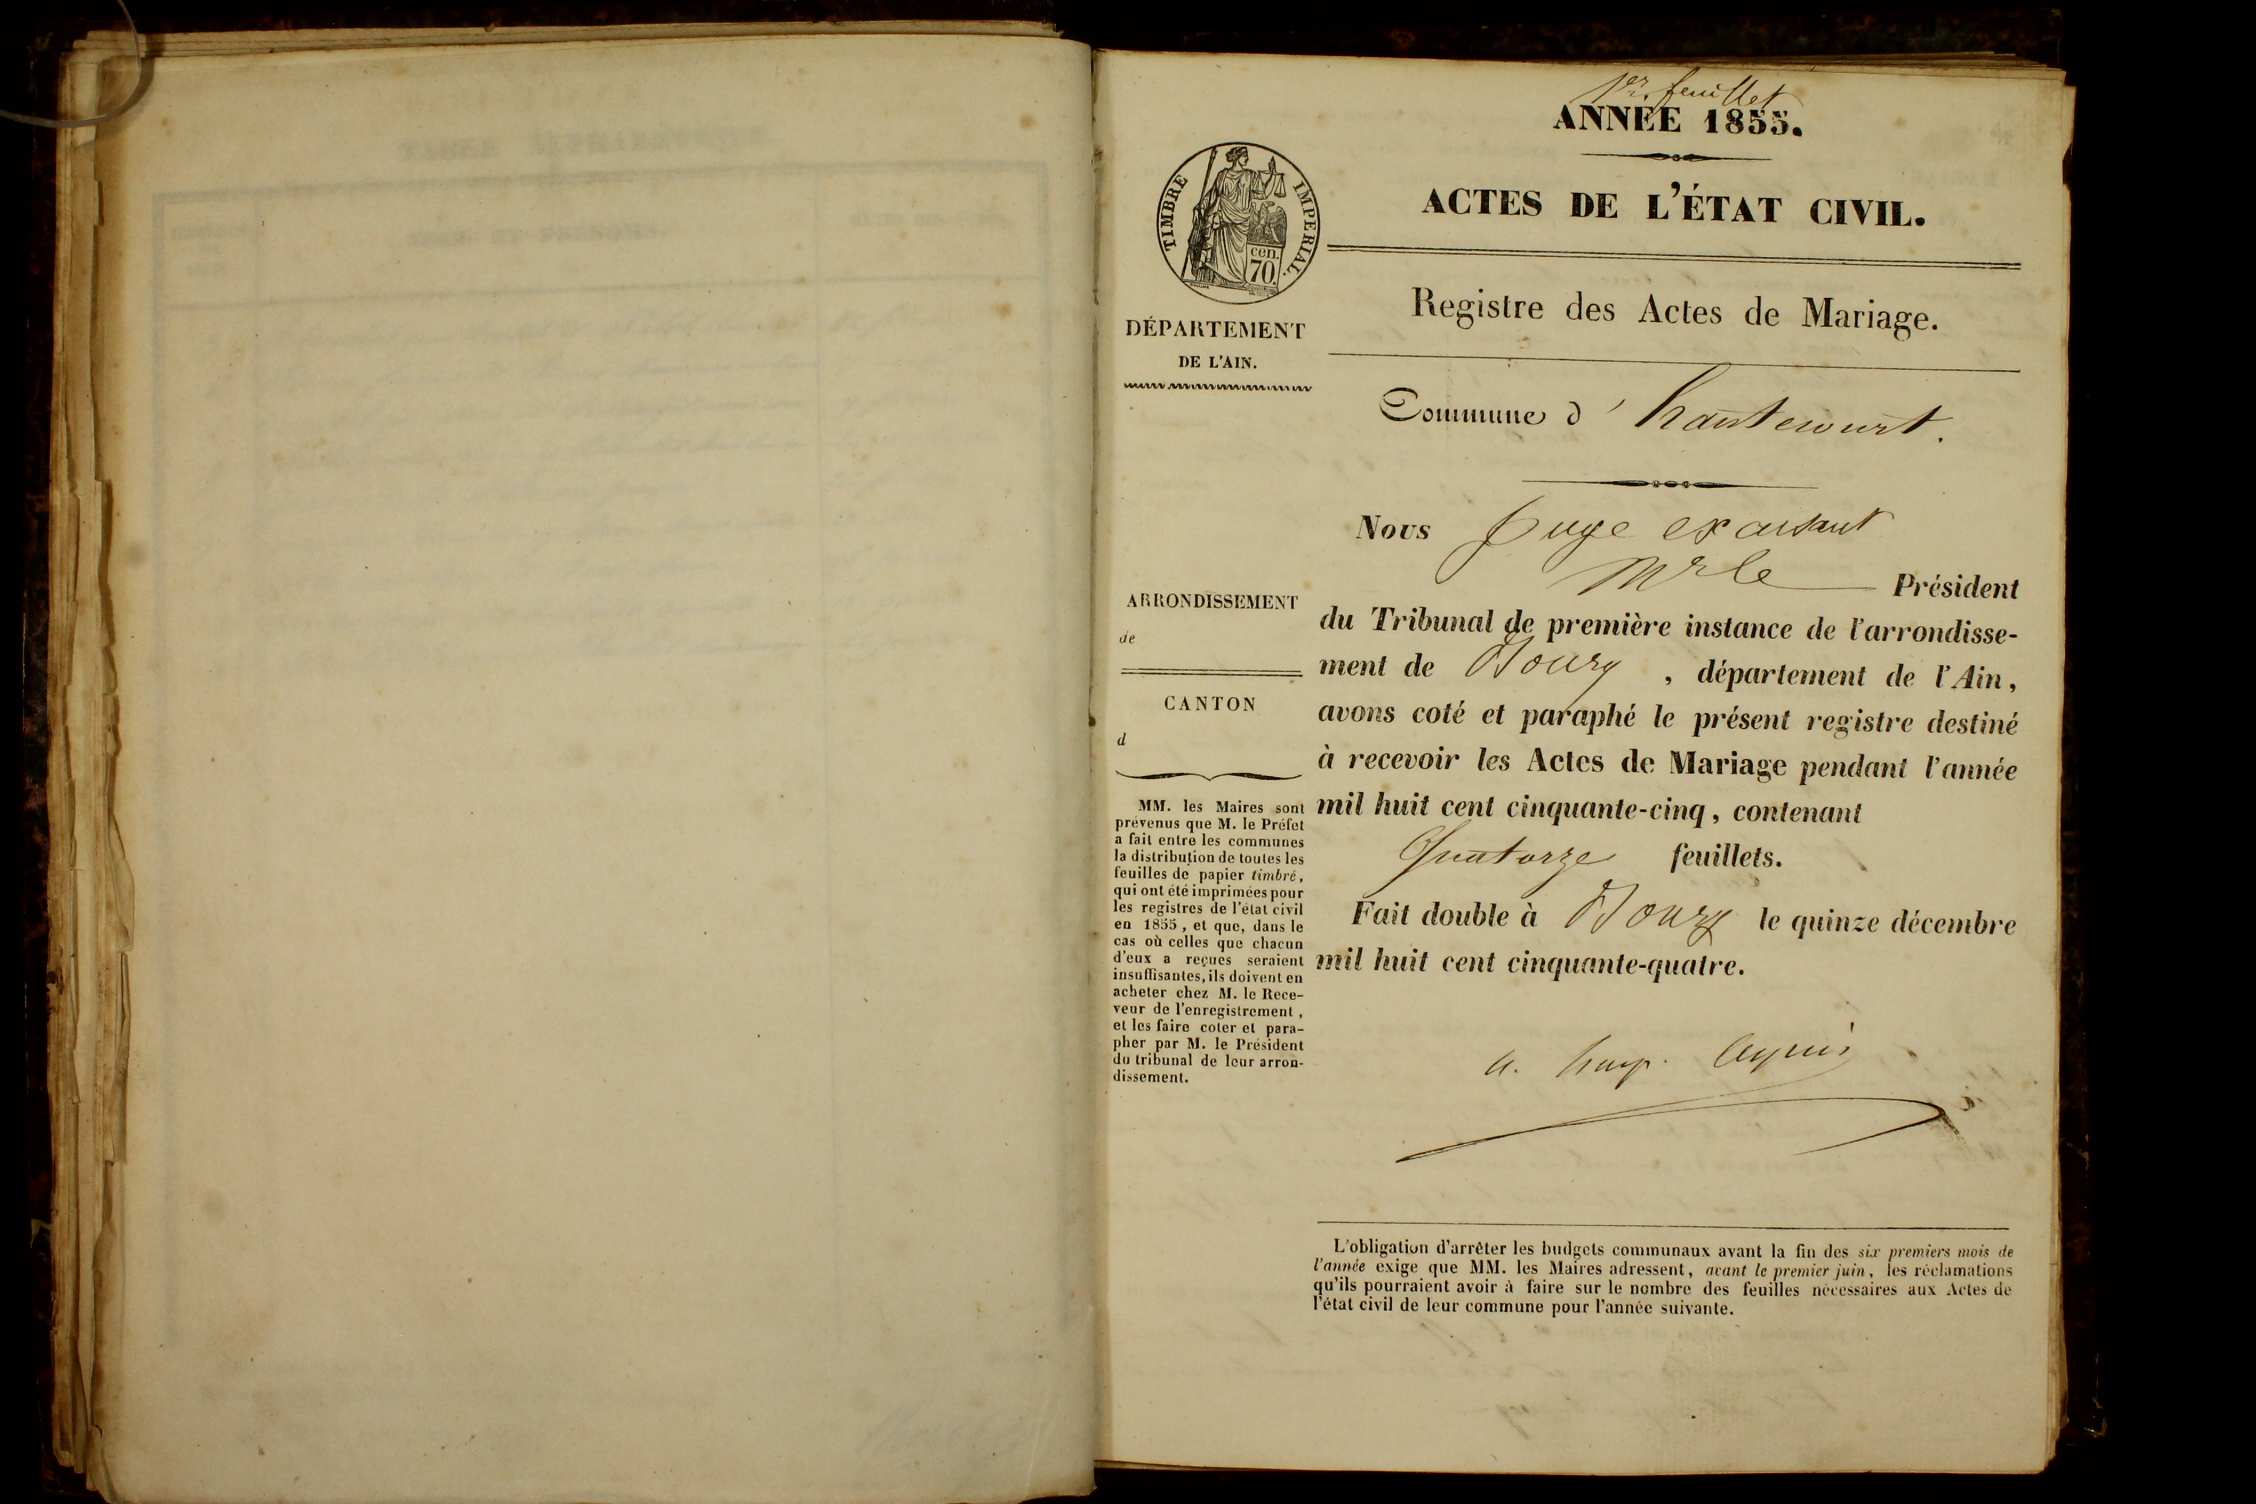 1er. feuillet
ANNÉE 1855.
ACTES DE L'ÉTAT CIVIL.
TIMBRE IMPERIAL.
cen.
70.
Registre des Actes de Mariage.
DÉPARTEMENT
DE L'AIN.
Commune d' hautecourt.
Nous juge ex
Mr le Président
du Tribunal de première instance de l'arrondisse-
ment de Bourg , département de l'Ain,
avons coté et paraphé le présent registre destiné
à recevoir les Actes de Mariage pendant l'année
mil huit cent cinquante-cinq, contenant
Quatorze feuillets.
Fait double à Bourg le quinze décembre
mil huit cent cinquante-quatre.
ARRONDISSEMENT
de
CANTON
d
MM. les Maires sont
prévenus que M. le Préfet
a fait entre les communes
la distribution de toutes les
feuilles de papier timbré,
qui ont été imprimées pour
les registres de l'état civil
en 1855, et que, dans le
cas où celles que chacun
d'eux a reçues seraient
insuffisantes, ils doivent en
acheter chez M. le Rece-
veur de l'enregistrement,
et les faire coter et para-
pher par M. le Président
du tribunal de leur arron-
dissement.
L'obligation d'arrêter les budgets communaux avant la fin des six premiers mois de
l'année exige que MM. les Maires adressent, avant le premier juin, les réclamations
qu'ils pourraient avoir à faire sur le nombre des feuilles nécessaires aux Actes de
l'état civil de leur commune pour l'année suivante.